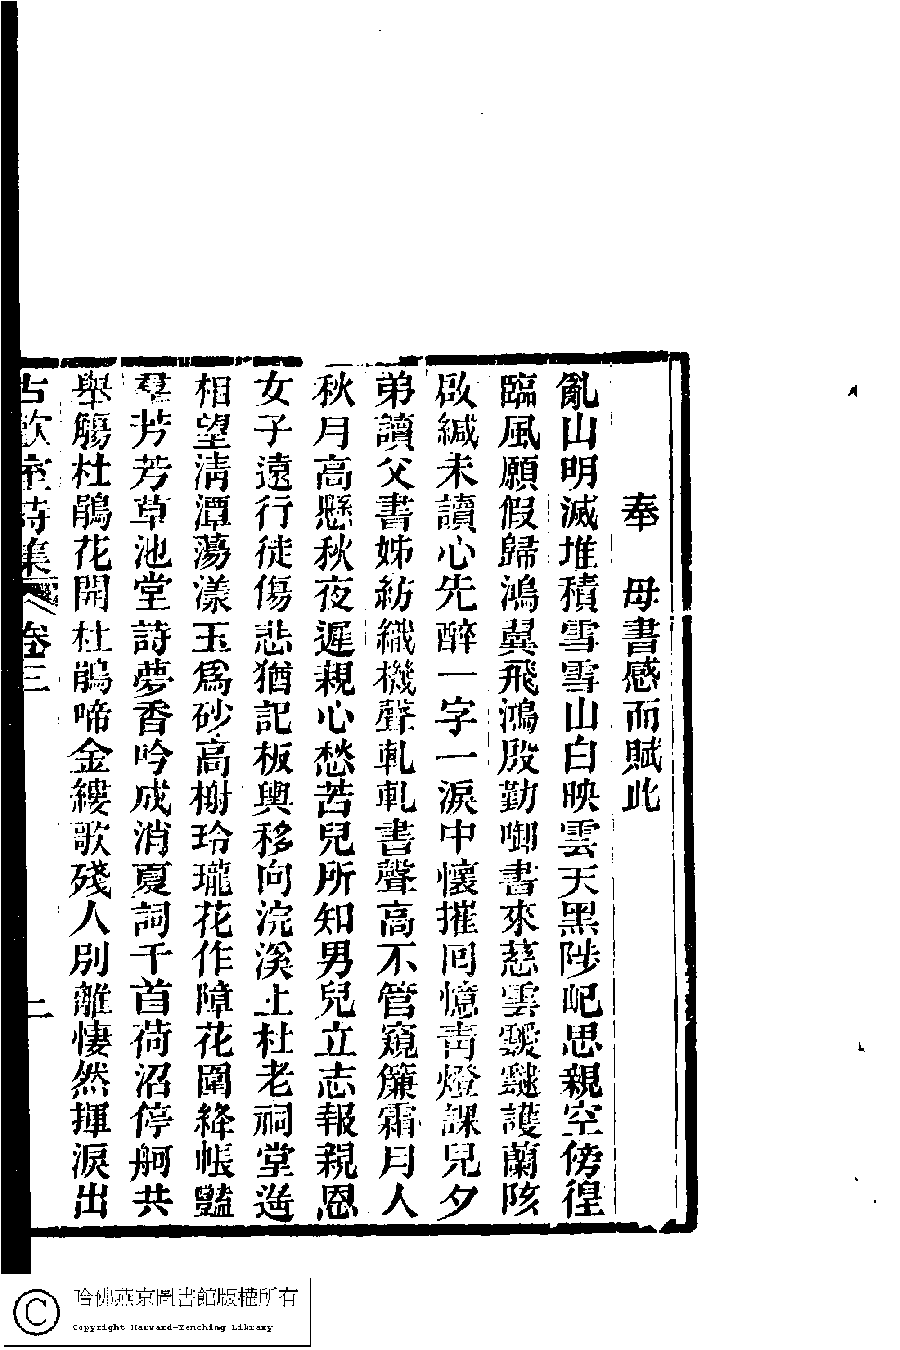 奉　母書感而賦此
亂山明滅堆積雪雪山白映雲天黑陟屺思親空傍徨
臨風願假歸鴻翼飛鴻殷勤啣書來慈雲靉靆護蘭陔
啟緘未讀心先醉一字一淚中懷摧囘憶靑燈課兒夕
弟讀父書姊紡織機聲軋軋書聲高不管窺簾霜月人
秋月高懸秋夜遲親心愁苦兒所知男兒立志報親恩
女子遠行徒傷悲猶記板輿移向浣溪上杜老祠堂遙
相望淸潭蕩漾玉爲砂高樹玲瓏花作障花圍絳帳豔
羣芳芳草池堂詩夢香吟成消夏詞千首荷沼停舸共
舉觴杜鵑花開杜鵑啼金縷歌殘人別離悽然揮淚出
古歡室詩集　卷三
哈佛燕京圖書館版權所有
Copyright Harvard-Yenching Library